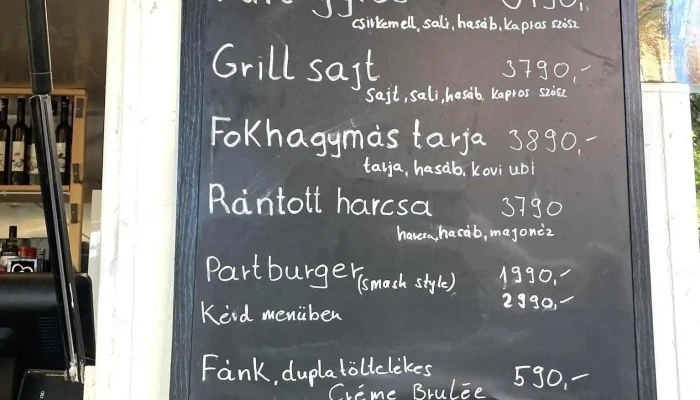 csirkemell, sali, hasáb, kapros szósz
Grill sajt 3790,-
sajt, sali, hasáb, kapros szósz
Fokhagymás tarja 3890,-
tarja, hasáb, kovi ubi
Rántott harcsa 3790
harcsa, hasáb, majonéz
Partburger (smash style) 1990,-
2990,-
Kérd menüben
Fánk, dupla töltelékes 590,-
Créme Brulée